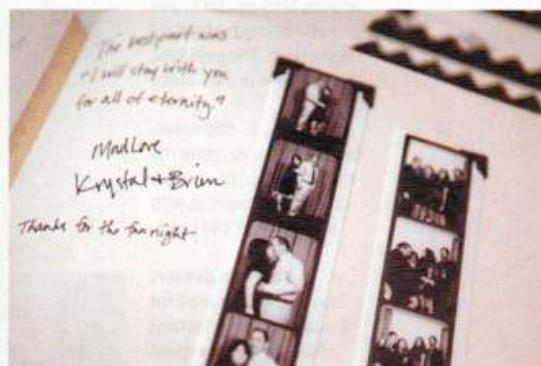 The best part was...
"I will stay with you
for all of eternity."
Mad Love
Krystal + Brian
Thanks for the fun night.